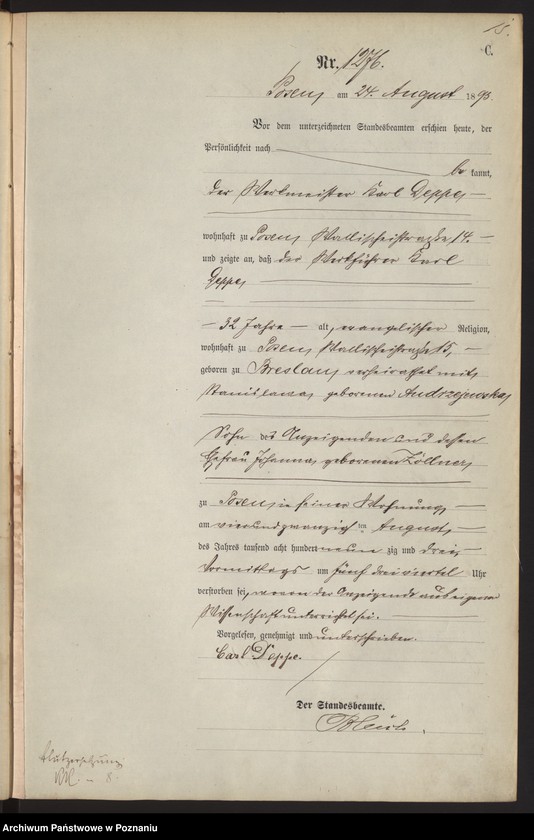 15.
C.
Nr. 1276.
Posen am 24. August 1893.
Vor dem unterzeichneten Standesbeamten erschien heute, der
Persönlichkeit nach
be kannt,
der Werkmeister Karl Deppe
wohnhaft zu Posen Wallischeistraße 14.
und zeigte an, daß der Werkführer Karl
Deppe
32 Jahre alt, evangelischer Religion,
wohnhaft zu Posen Wallischeistraße 15,
geboren zu Breslau, verheirathet mit
Stanislawa geborenen Andrzejewska,
Sohn des Anzeigenden und dessen
Ehefrau Johanna geborenen Zöllner,
zu Posen, in seiner Wohnung
am vierundzwanzigsten August
des Jahres tausend acht hundert neunzig und drei
Vormittags um fünf dreiviertel Uhr
verstorben sei, wovon der Anzeigende aus eigener
Wissenschaft unterrichtet sei.
Vorgelesen, genehmigt und unterschrieben.
Carl Deppe.
Der Standesbeamte.
Blutzersetzung
Archiwum Państwowe w Poznaniu